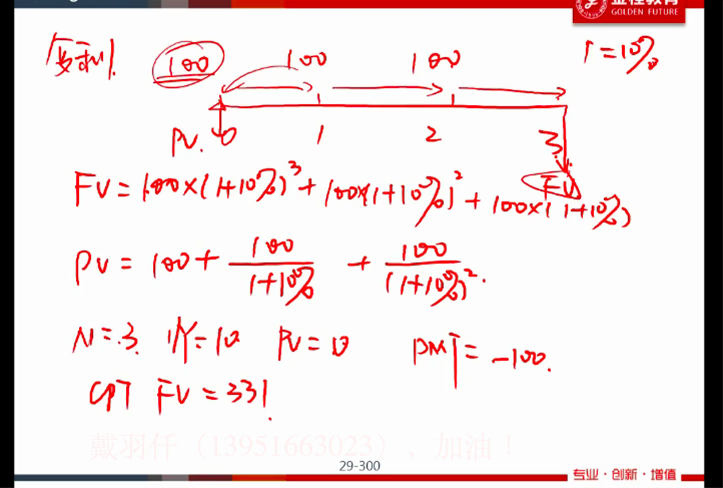 GOLDEN FUTURE
复利 100 100 100 r=10%
PV. 0 1 2 3
FV
FV = 100×(1+10%)³ + 100×(1+10%)² + 100×(1+10%)
PV = 100 + 100/(1+10%) + 100/(1+10%)².
N=3. I/Y=10 PV=0 PMT=-100.
CPT FV=331.
戴羽仟（13951663023），加油！
29-300
专业·创新·增值